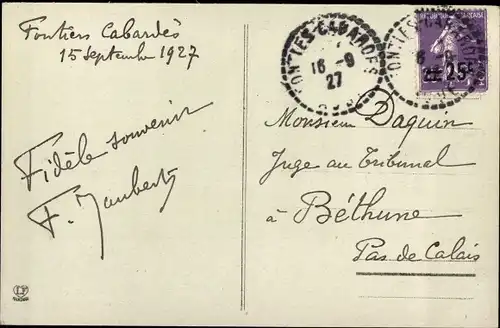 Fontiers Cabardès
15 Septembre 1927
Fidèle souvenir
F. Jaubert
FONTIES-CABARDES
16-9
27
AUDE
25c
Monsieur Daquin
Juge au Tribunal
à Béthune
Pas de Calais